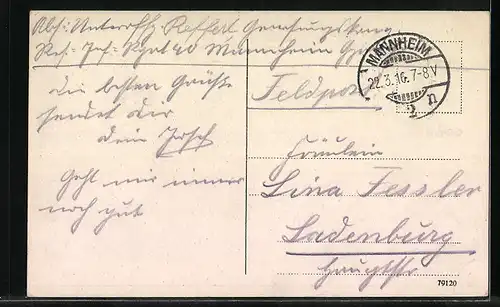 Abs: Unteroffz. Reffert Genesungskomp.
Res. Inf. Rgt 40 Mannheim
MANNHEIM
22.3.16.7-8V
2 n
Feldpost
Die besten Grüße
sendet dir
dein Josef
Geht mir immer
noch gut
Fräulein
Lina Fessler
Ladenburg
Hauptstr
79120